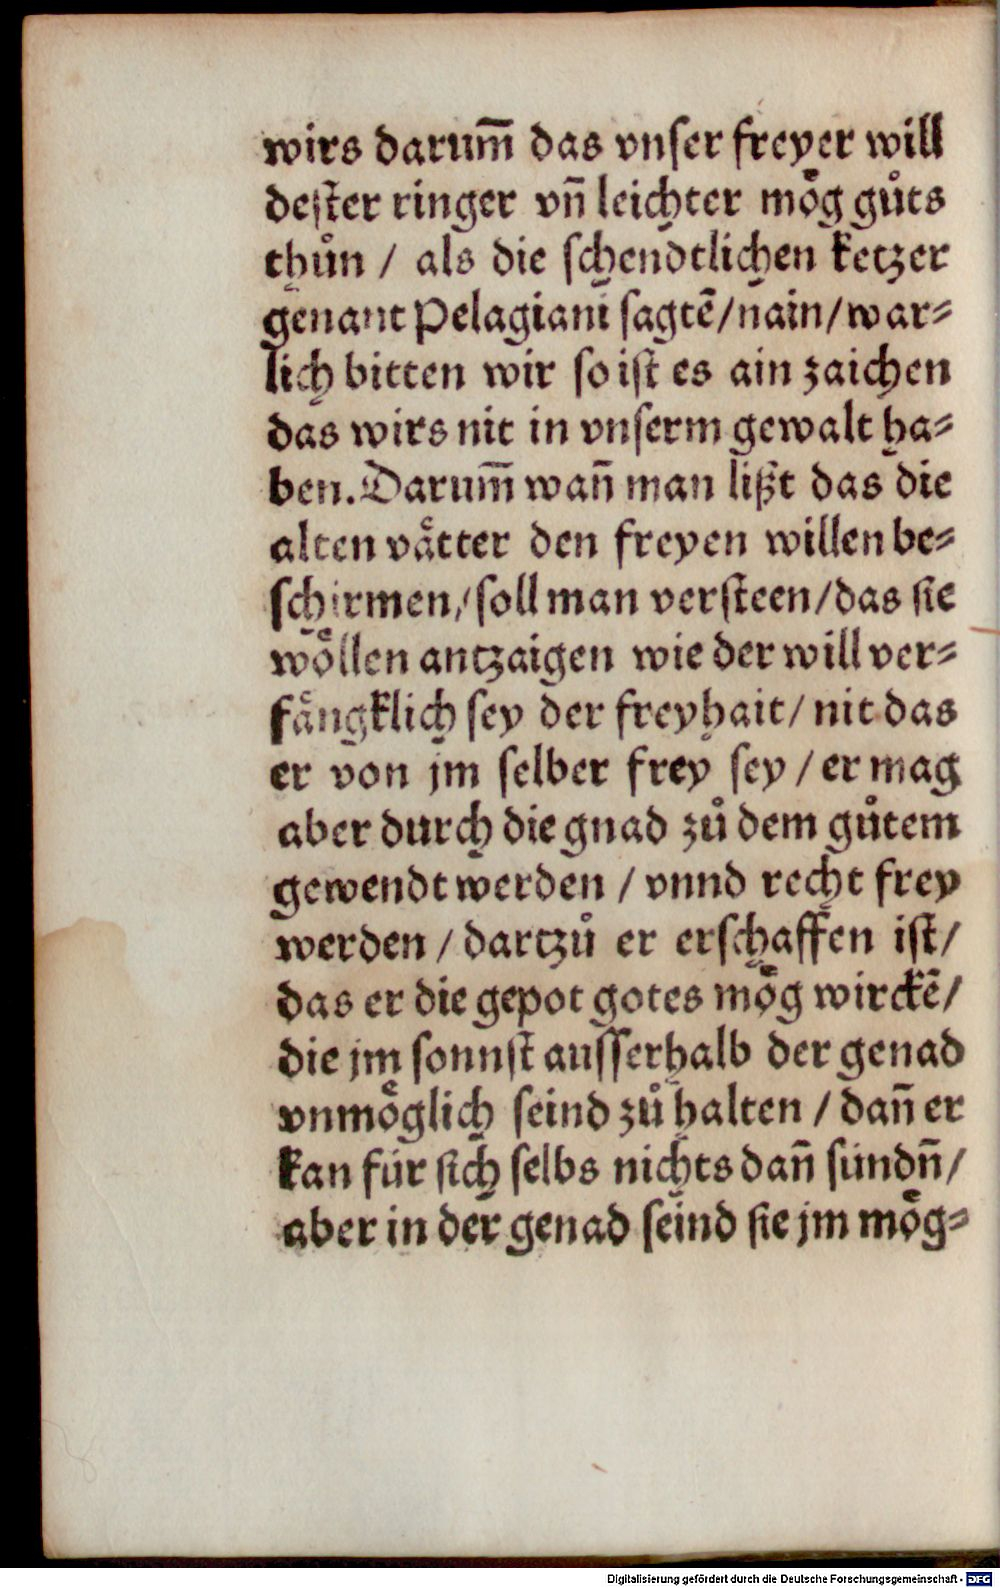 wirs darum̄ das vnser freyer will
dester ringer vn̄ leichter moͤg guͦts
thuͦn / als die schendtlichen ketzer
genant Pelagiani sagtē/nain/war⸗
lich bitten wir so ist es ain zaichen
das wirs nit in vnserm gewalt ha⸗
ben. Darum̄ wan̄ man lißt das die
alten vaͤtter den freyen willen be⸗
schirmen/ soll man versteen/das sie
woͤllen antzaigen wie der will ver⸗
faͤngklich sey der freyhait/ nit das
er von jm selber frey sey / er mag
aber durch die gnad zuͦ dem guͦtem
gewendt werden / vnnd recht frey
werden / dartzuͦ er erschaffen ist/
das er die gepot gotes moͤg wirckē/
die jm sonnst ausserhalb der genad
vnmoͤglich seind zuͦ halten / dan̄ er
kan für sich selbs nichts dan̄ sündn̄/
aber in der genad seind sie jm moͤg⸗
Digitalisierung gefördert durch die Deutsche Forschungsgemeinschaft - DFG